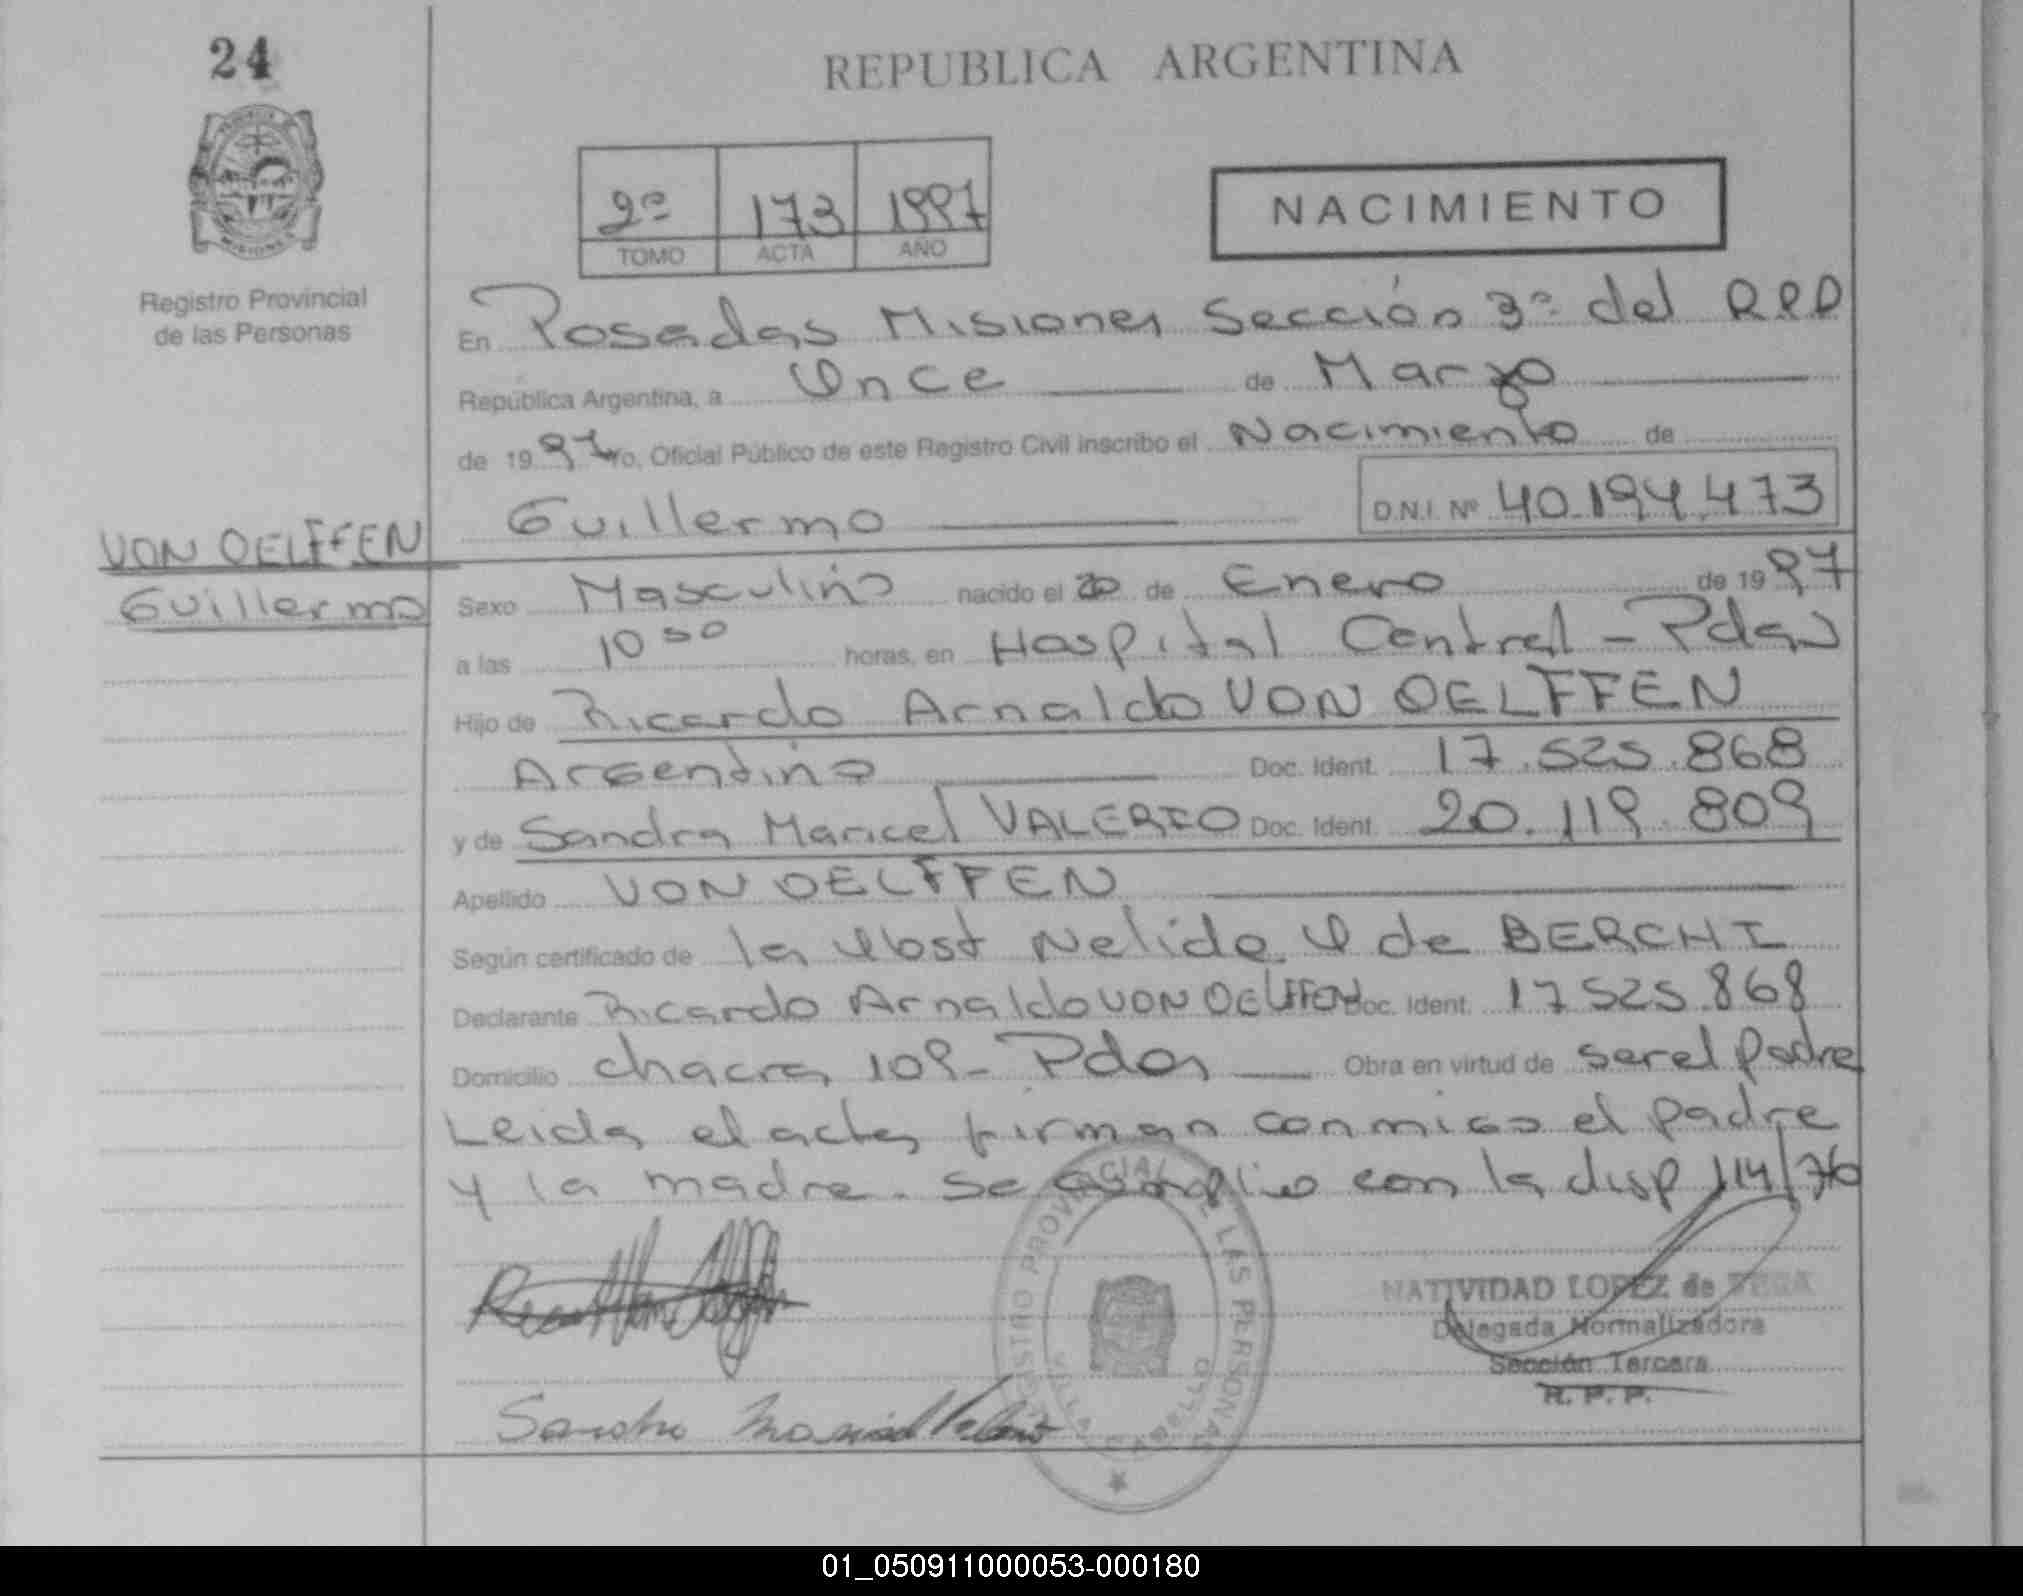 24
REPUBLICA ARGENTINA
2º 173 1997
TOMO ACTA AÑO
NACIMIENTO
Registro Provincial
de las Personas
En Posadas Misiones Sección 3º del RPP
República Argentina, a Once de Marzo
de 1997 Yo, Oficial Público de este Registro Civil inscribo el Nacimiento de
Guillermo D.N.I. Nº 40.194.473
VON OELFFEN
Guillermo
Sexo Masculino nacido el 20 de Enero de 1997
a las 10 50 horas, en Hospital Central - Pdas
Hijo de Ricardo Arnaldo VON OELFFEN
Argentino Doc. Ident. 17.525.868
y de Sandra Maricel VALERIO Doc. Ident. 20.119.809
Apellido VON OELFFEN
Según certificado de la Obst Nelida O de BERCHI
Declarante Ricardo Arnaldo VON OELFFEN Doc. Ident. 17.525.868
Domicilio chacra 109 - Pdas Obra en virtud de ser el padre
Leida el acta, firman conmigo el padre
y la madre. Se cumplio con la disp 114/76
REGISTRO PROVINCIAL DE LAS PERSONAS
VILLA CABELLO
NATIVIDAD LOPEZ de VEGA
Delegada Normalizadora
Sección Tercera
R. P. P.
Sandra Maricel Valerio
01_050911000053-000180